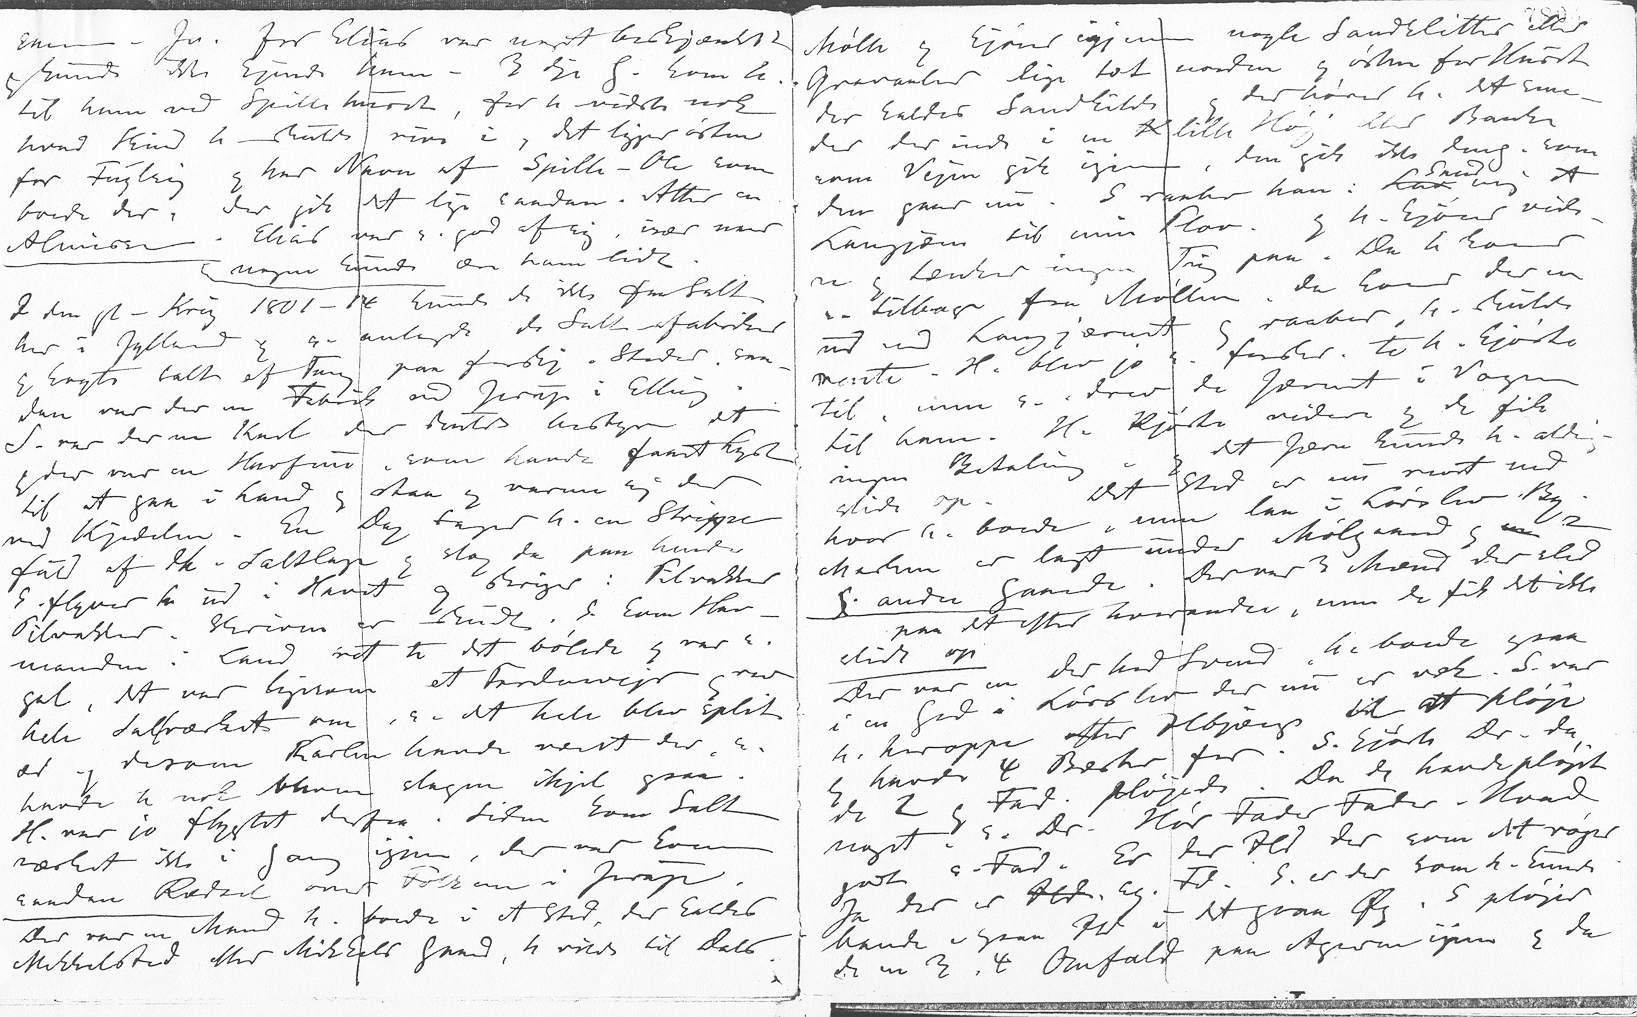 senn - Jo. for Elias var noget beskjænket
og kunde ikke kjende ham - 3die G. kom h.
til ham ved Spillehuset, for h vidste nok
hvad Kind h skulde rive i, det ligger østen
for Fuglsig og har Navn af Spille-Ole som
boede der, der gik det lige saadan. Atter en
Almisse. Elias var s. god af sig, især naar
nogen kunde ære ham lidt.
I den gl. Krig 1801-14 kunde de ikke faa Salt
her i Jylland og s. anlagde de Salt-fabrikker
og kogte salt af Tang paa forskj. Steder. saa-
dan var der en Fabrik ved Jerup i Elling.
S. var der en Karl der skulde bestyre det
og der var en Havfrue, som havde faaet Lyst
til at gaa i Land og staa og varme sig der
ved Kjedelen. En Dag tager h. en Strippe
fuld af dk. Saltlage og slog da paa hende
S. flyver h ud i Havet og skriger: Pilvakker
Pilvakker. skriven er skudt. S kom Hav-
manden i Land ret te det bølede og var s.
gal, det var ligesom et Tordenvejr og rev
hele Saltværket om, s. det hele blev splitt
ad og dersom Karlen havde været der, s.
havde h nok bleven slagen ihjel ogsaa.
H. var jo flygtet derfra. Siden kom Salt
værket ikke i Gang igjen, der var kommen
saadan Rædsel over Folkene i Jerup.
Der var en Mand h. boede i et Sted, der kaldes
Mikkelsted eller Mikkels Gaard, h vilde til Dals
Mølle og kjører igjennem nogle Sandklitter eller
Gravanker lige tæt norden og østen for Huset
der kaldes Sandkilde og der hører h. det sme-
der der inde i en lille Høj eller Banke
som Vejen gik igjen, den gik ikke deng. som
den gaar nu. S raaber han: Smed mig et
Langjærn til min Plov. og h. kjører vide-
re og tænker ingen Ting paa. Da h kommer
s. tilbage fra Møllen, da kommer der en
ud med Langjærnet og raaber, h. skulde
vente. H. blev jo s. forskr. te h. kjørte
til, men s. drev de Jærnet i Vognen
til ham. H. kjørte videre og de fik
ingen Betaling og det Jærn kunde h. aldrig
slide op. Det Sted er nu revet ned
hvor h. boede, men laa i Lørslev By.
Marken er lagt under Mølgaard og 2
andre Gaarde. Der var 3 Mænd der sled
paa det efter hverandre, men de fik det ikke
slidt op
Der var en der hed Svend, h. boede ogsaa
i en Grd i Lørslev der nu er væk. S. var
h. heroppe efter Ilbjærge til at pløje
og havde 4 Bæster for. S. kjørte Dr. da,
de 2 og Fad. pløjede. Da de havde pløjet
noget s. Dr. Hør Fader Fader. Hvad
godt s. Fad. Er der Ild der som det røger
Ja der er sg. Fd. S. er der som h. kunde
bande, ogsaa Ild i det graa Øg. S pløjer
de en 3, 4 Omfald paa Ageren igjen og da